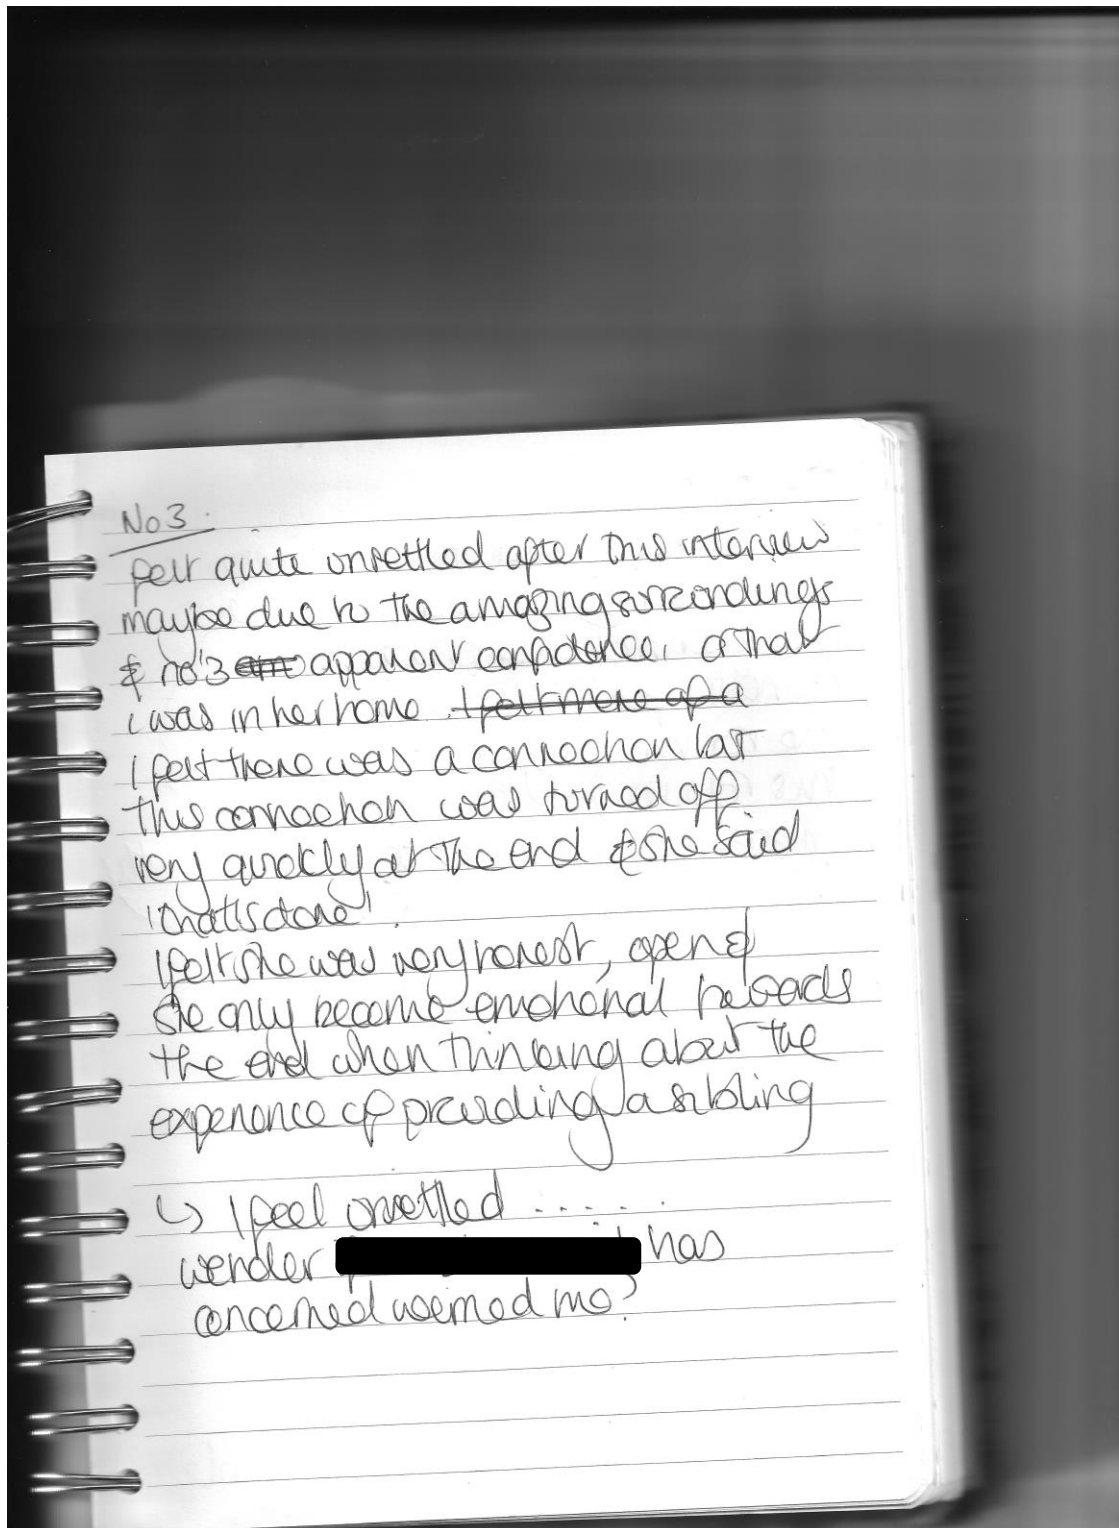 No 3.
felt quite unsettled after this interview
maybe due to the amazing surrondings
& no'3 apparent confidence, or that
i was in her home I felt more of a
I felt there was a connection but
this connection was turned off
very quickly at the end & she said
'that is done'.
I felt she was very honest, open &
she only became emotional towards
the end when thinking about the
experience of providing a sibling
↳ I feel unsettled .....
wonder has
concerned worried me?